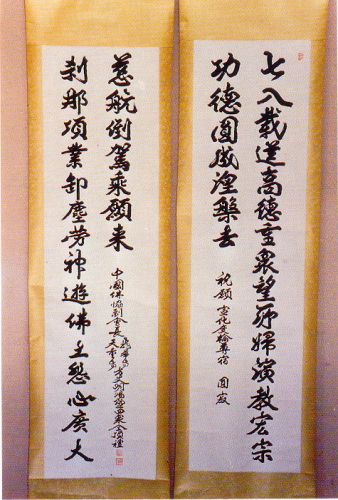 七八載道高德重眾望所歸演教宏宗
功德圓成涅槃去
祝願 宣化度輪尊宿 圓寂
剎那頃業卸塵勞神遊佛土心廣大
慈航倒駕乘願來
中國佛協副會長
頂禮